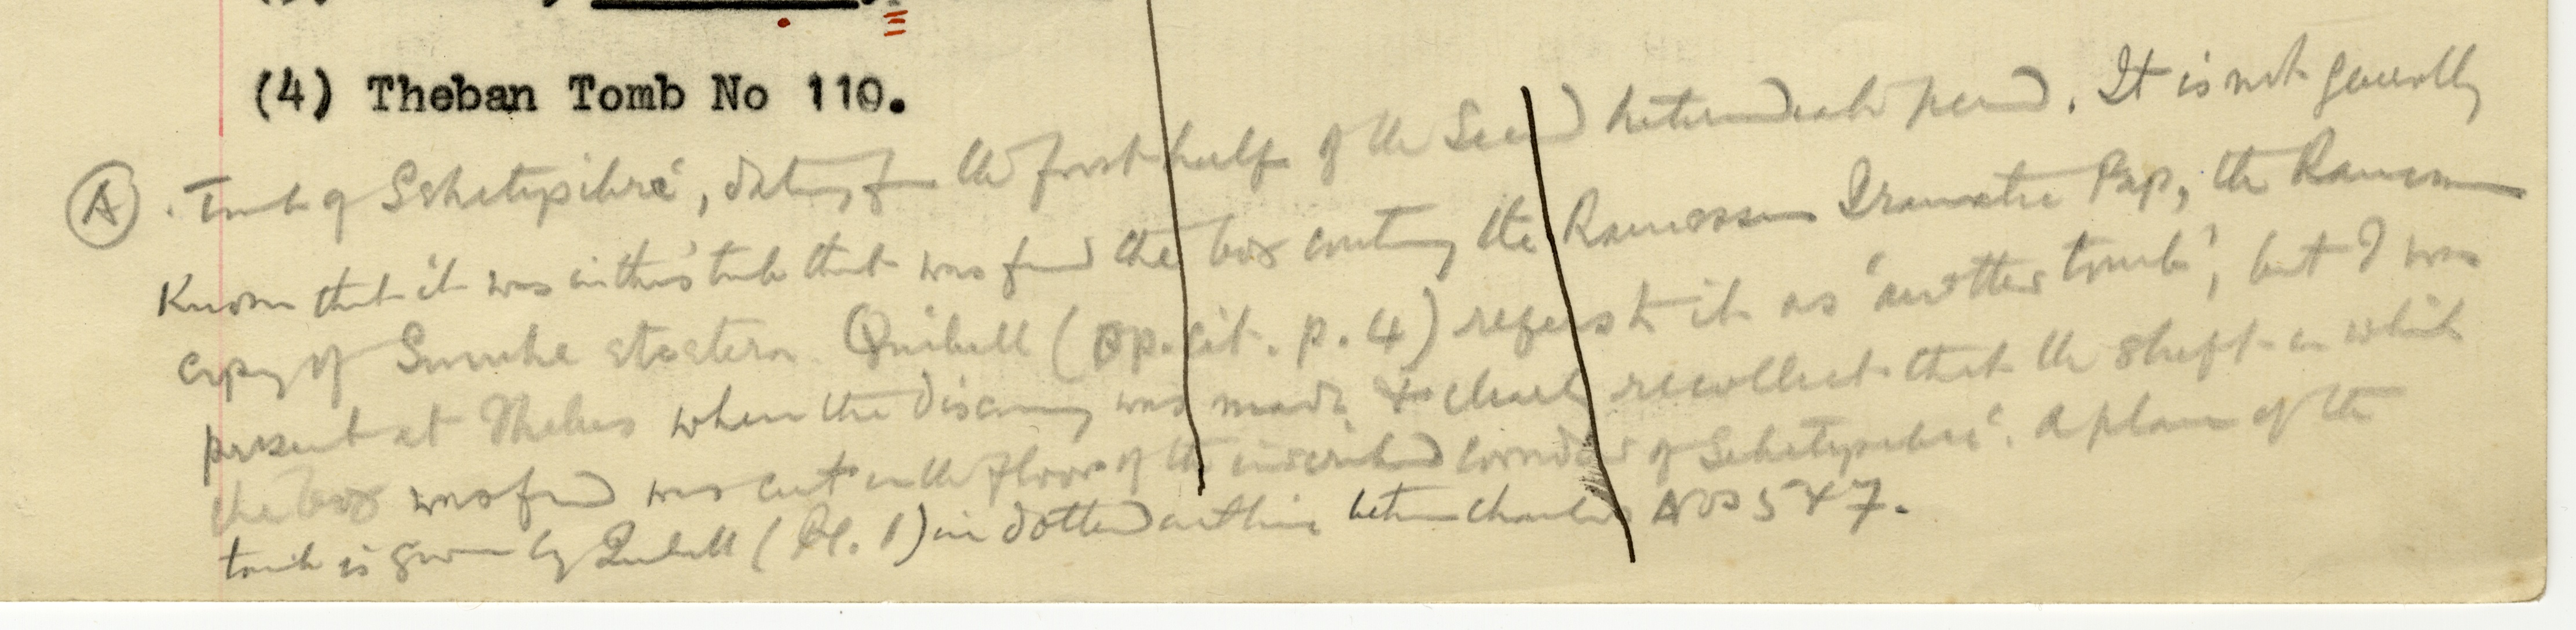 (4) Theban Tomb No 110.
(A). Tomb of Sehetepibrēʿ, dating from the first half of the Second Intermediate period. It is not generally
known that it was in this tomb that was found the box containing the Ramesseum Dramatic Pap, the Ramesseum
copy of Sinuhe etcetera. Quibell (Op. cit. p. 4) refers to it as 'another tomb', but I was
present at Thebes when the discovery was made & clearly recollect that the shaft in which
the box was found was cut in the floor of the inscribed corridor of Sehetepibrēʿ. A plan of the
tomb is given by Quibell (Pl. 1) in dotted outline between chambers Nos 5 & 7.